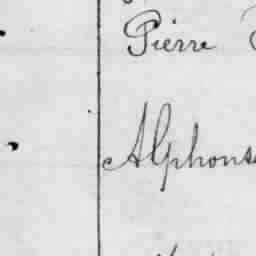 Pierre
Alphons